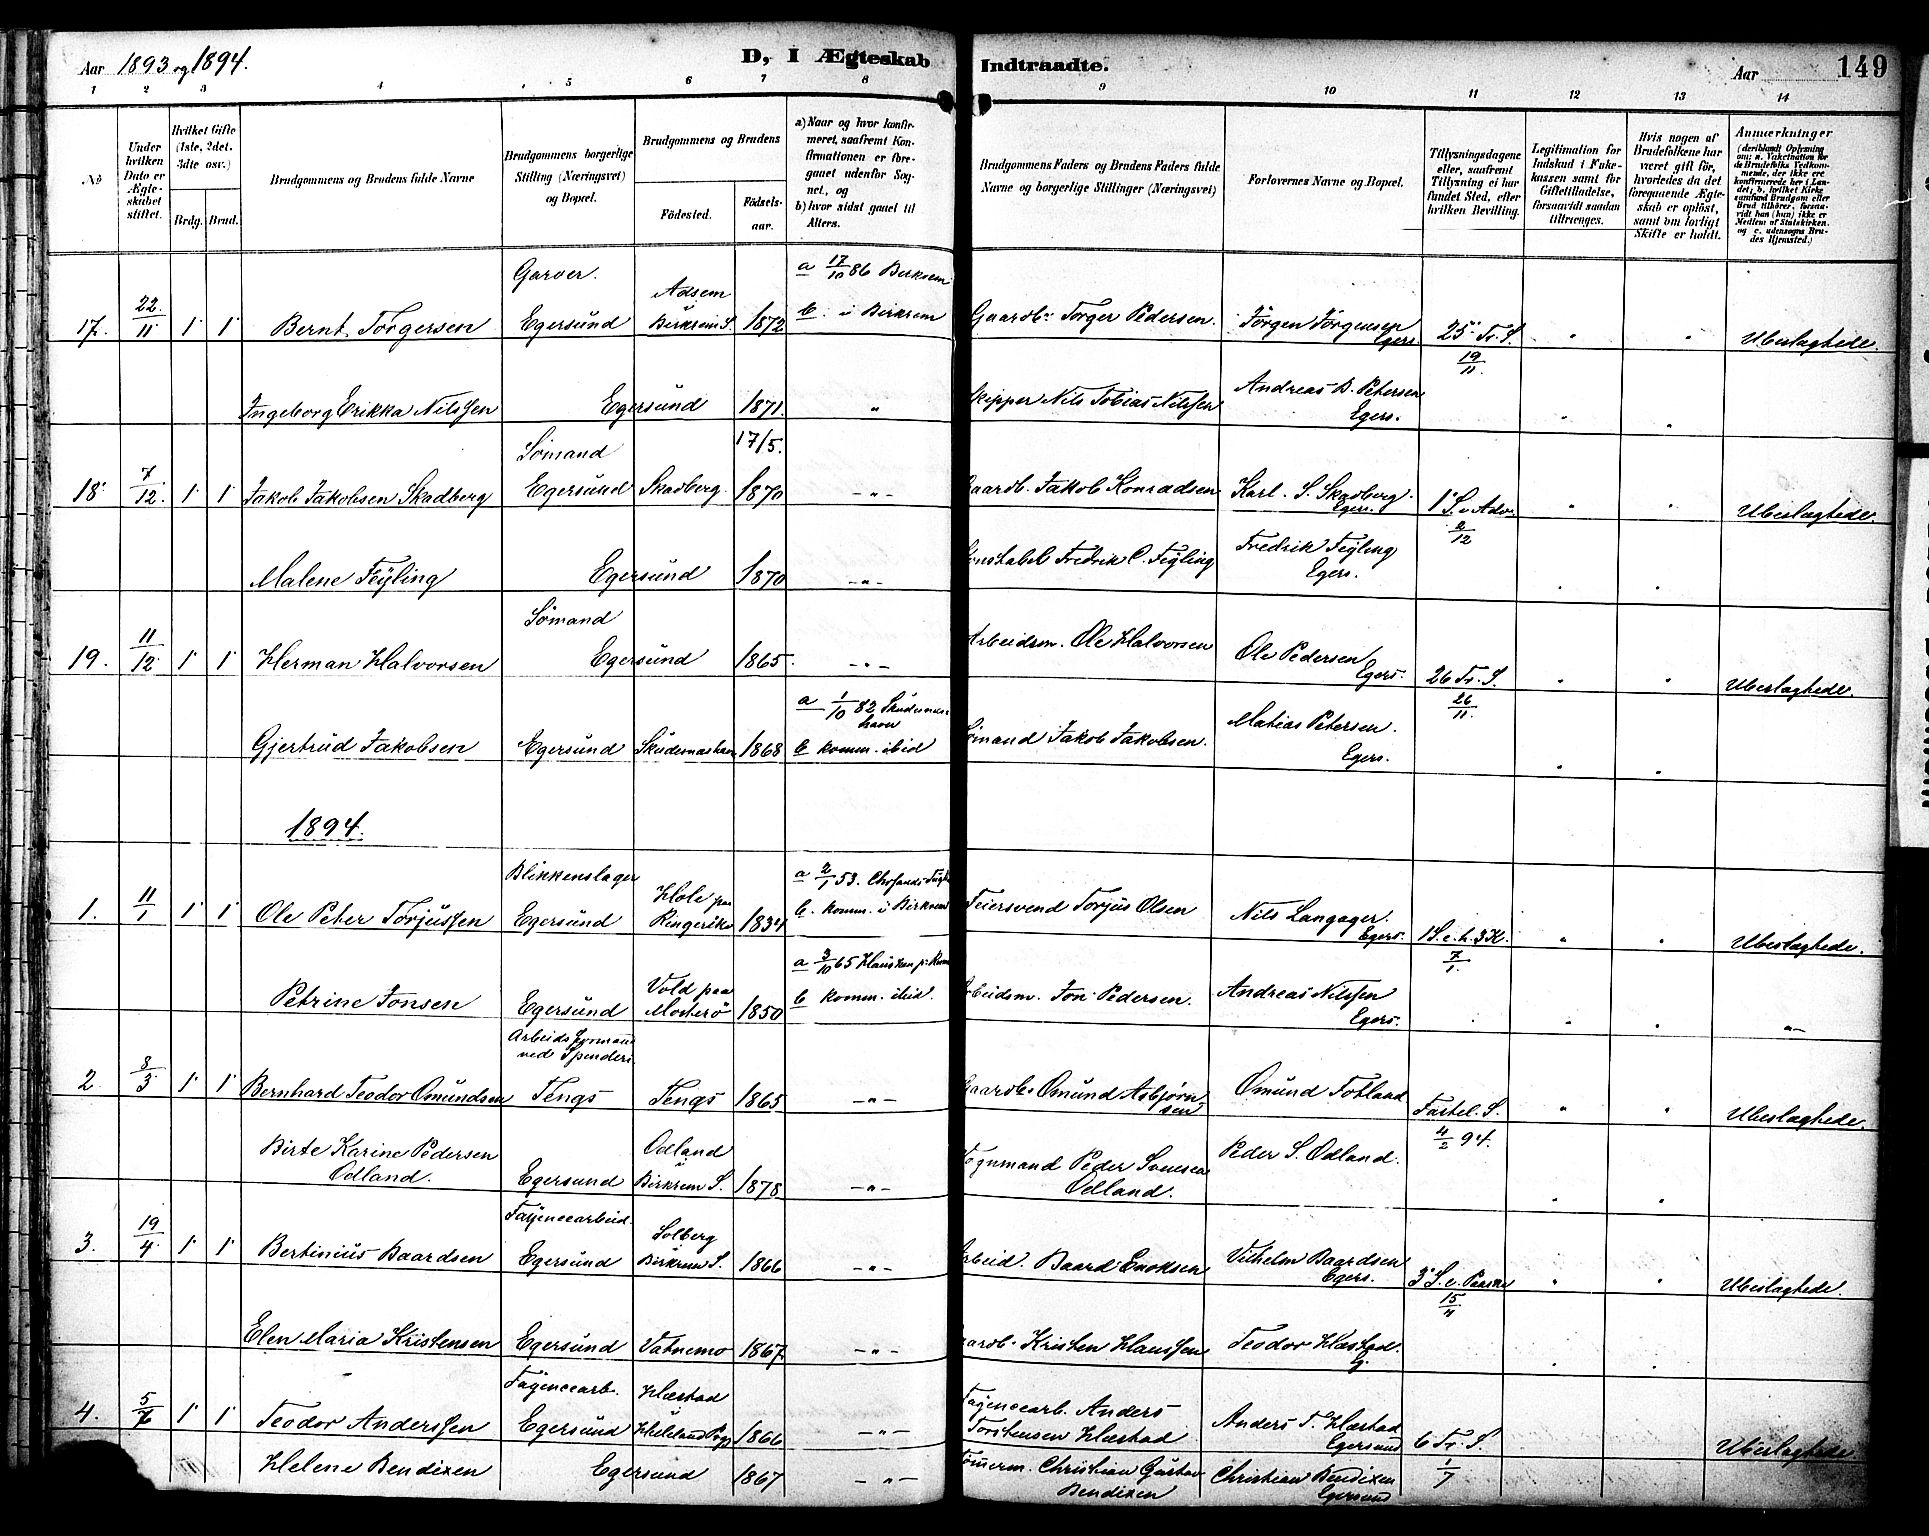 Aar 1893 og 1894.
D, I Ægteskab Indtraadte.
Aar 149
1 2 3 4 5 6 7 8 9 10 11 12 13 14
No
Under hvilken Dato er Ægteskabet stiftet.
Hvilket Gifte (1ste, 2det, 3die osv.)
Brdg. Brud.
Brudgommens og Brudens fulde Navne
Brudgommens borgerlige Stilling (Næringsvei) og Bopæl.
Brudgommens og Brudens
Fødested. Fødselsaar.
a) Naar og hvor konfirmeret, saafremt Konfirmationen er foregaaet udenfor Sognet, og
b) hvor sidst gaaet til Alters.
Brudgommens Faders og Brudens Faders fulde Navne og borgerlige Stillinger (Næringsvei)
Forlovernes Navne og Bopæl.
Tillysningsdagene eller, saafremt Tillysning ei har fundet Sted, efter hvilken Bevilling.
Legitimation for Indskud i Enkekassen samt for Giftetilladelse, forsaavidt saadan tiltrænges.
Hvis nogen af Brudefolkene har været gift før, hvorledes da det foregaaende Ægteskab er opløst, samt om lovligt Skifte er holdt.
Anmærkninger (deriblandt Oplysning om: a. Vakcination for de Brudefolks Vedkommende, der ikke ere konfirmerede her i Landet; b. hvilket Kirkesamfund Brudgom eller Brud tilhører, forsaavidt han (hun) ikke er Medlem af Statskirken, og c. udensogns Brudes Hjemsted.)
17. 22/11 1 1 Bernt Torgersen Garver. Egersund Adsem Birkrem S. 1872 a 17/10 86 Birkrem b i Birkrem Gaardbr. Torger Pedersen. Jørgen Jørgensen Egers. 25 Tr. S. 19/11 " " Ubeslægtede.
Ingeborg Erikka Nilssen Egersund 1871. " Skipper Nils Tobias Nilssen Andreas B. Petersen Egers. " "
18 7/12. 1 1 Jakob Jakobsen Skadberg Sømand Egersund Skadberg 17/5. 1870 -"- Gaardb. Jakob Konradsen Karl. S. Skadberg. Egers. 1 S. i Adv. 2/12 " " Ubeslægtede.
Malene Feyling Egersund 1870 -"- Konstabel Fredrik C. Feyling Fredrik Feyling Egers. " "
19. 11/12 1 1 Herman Halvorsen Sømand Egersund 1865. -"- Arbeidsm. Ole Halvorsen Ole Pedersen Egers. 26 Tr. S. 26/11 " " Ubeslægtede.
Gjertrud Jakobsen Egersund Skudesneshavn 1868 a 1/10 82 Skudesneshavn b komm. ibid Sømand Jakob Jakobsen. Matias Petersen. Egers. " "
1894.
1. 11/1 1 1 Ole Peter Torjussen Blikkenslager Egersund Hole paa Ringerike 1834 a 2/1 53. b. komm. i Birkrem Feiersvend Torjus Olsen Nils Langager. Egers. 1 S. e. h. 3 K. 7/1. " " Ubeslægtede.
Petrine Jonsen Egersund Vold paa Mosterö 1850 a 3/10 65 b komm. ibid. Arbeidsm. Jon Pedersen. Andreas Nilssen Egers. " " -"-
2. 8/3 1 1 Bernhard Teodor Omundsen Arbeidsformand ved Spinderi. Tengs Tengs 1865 -"- Gaardbr. Omund Asbjørnsen Omund Totland Fastel. S. 4/2 94. " " Ubeslægtede.
Birte Karine Pedersen Odland. Egersund Odland Birkrem S. 1878 -"- Peder Odland. Peder S. Odland. " "
3. 19/4 1 1 Bertinius Baardsen Fayencearbeid. Egersund Solberg Birkrem S. 1866 -"- Arbeid. Baard Enoksen Vilhelm Baardsen Egers. 3 S. e. Paaske 15/4 " " Ubeslægtede.
Elen Maria Kristensen Egersund Vatnemo 1867 -"- Gaardb. Kristen Klaussen Teodor Hæstad. E. " "
4. 5/7 1 1 Teodor Anderssen Fayencearb. Egersund Hæstad Heleland Præg. 1866 -"- Fayencearb. Anders Torstensen Hæstad Anders T. Hæstad Egersund 6 Tr. S. 1/7 Ubeslægtede.
Helene Bendixen Egersund 1867 -"- Tömerm. Christian Gustav Bendixen Christian Bendixen Egersund